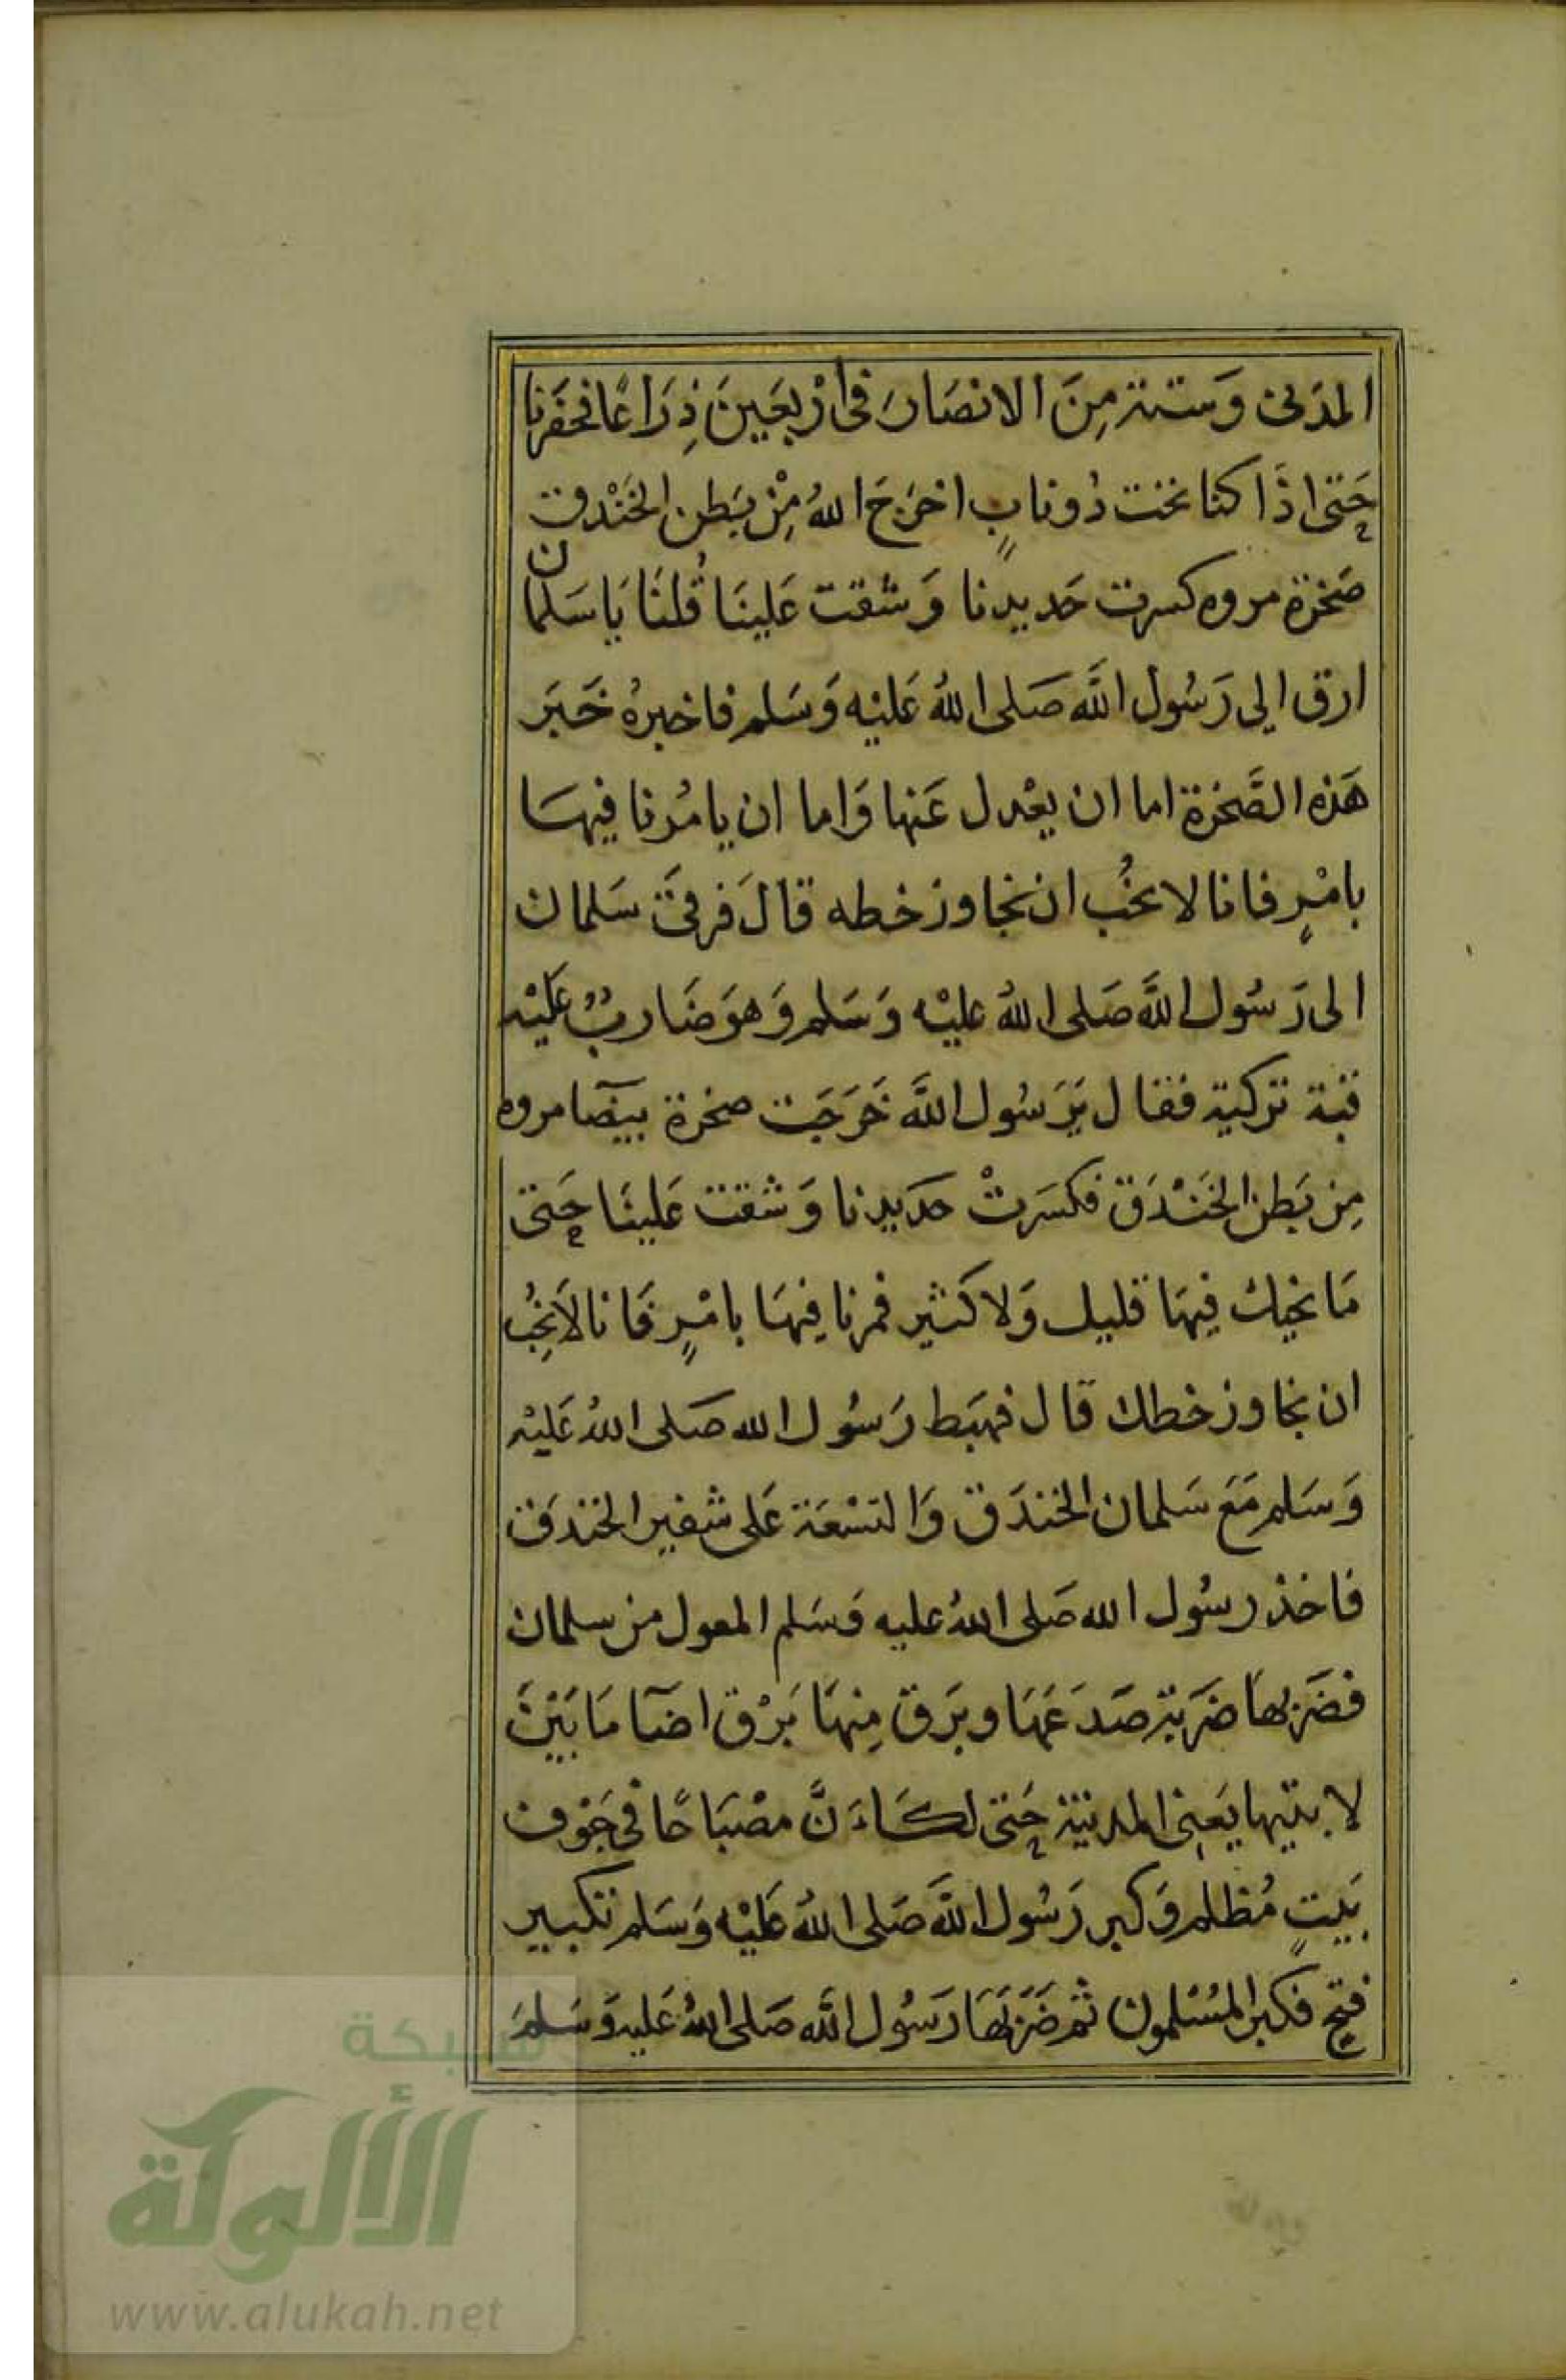 المدَنى وَستة مِنَ الانصَارَ فى ارْبعَينَ ذِرَاعًا فحفَرنا
حَتى اذَا كنا تحت دُونابٍ اخرَجَ اللهُ مِنْ بَطن الخَنْدق
صَخرة مروه كسرت حَديدنا وَشقت عَلينَا قُلنَا يَا سَلمان
ارق الى رَسُول اللَّه صَلى اللهُ عَليْه وَسَلم فاخبرهُ خَبَر
هَذه الصَّخرة اما ان يعْدل عَنها وَاما ان يامُرنا فيهَا
بامْرٍ فانا لا نحُب ان نجاوز خطه قالَ فرقىَ سَلمان
الى رَسُول اللَّه صَلى اللهُ عليْه وَسَلم وَهوَ ضَاربٌ عَليْه
قبة تركية فقال يَرَسُول اللَّه خَرَجَت صخرة بيضَا مروه
مِن بَطن الخَنْدَق فكسَرتْ حدَيدنا وَشقت عَلينَا حَتى
مَا نحيك فيهَا قليل وَلا كثير فمرنا فيهَا بامْرٍ فَانا لاَ نحُب
ان نجاوز خطك قال فهبَط رَسُول الله صَلى اللهُ عَليْه
وَسَلم مَعَ سَلمان الخندَق وَالتسْعَة عَلى شفير الخندَق
فاخذ رسُول الله صَلى اللهُ عليه وَسَلم المعول من سلمان
فضَربهَا ضَربة صَدَعَهَا وبَرَق مِنهَا بَرْق اضَآ مَا بَيْنَ
لابتيها يَعنِى المدينة حَتى لكَاَنَّ مصْبَاحًا فى جَوف
بَيتٍ مُظلم وَكبر رَسُول اللَّه صَلى اللهُ عَليْه وَسَلم تكبير
فتح فكبر المسُلمون ثم ضَرَبَهَا رَسُول اللَّه صَلى اللهُ عَليه وَسَلمَ
شبكة
الألوكة
www.alukah.net